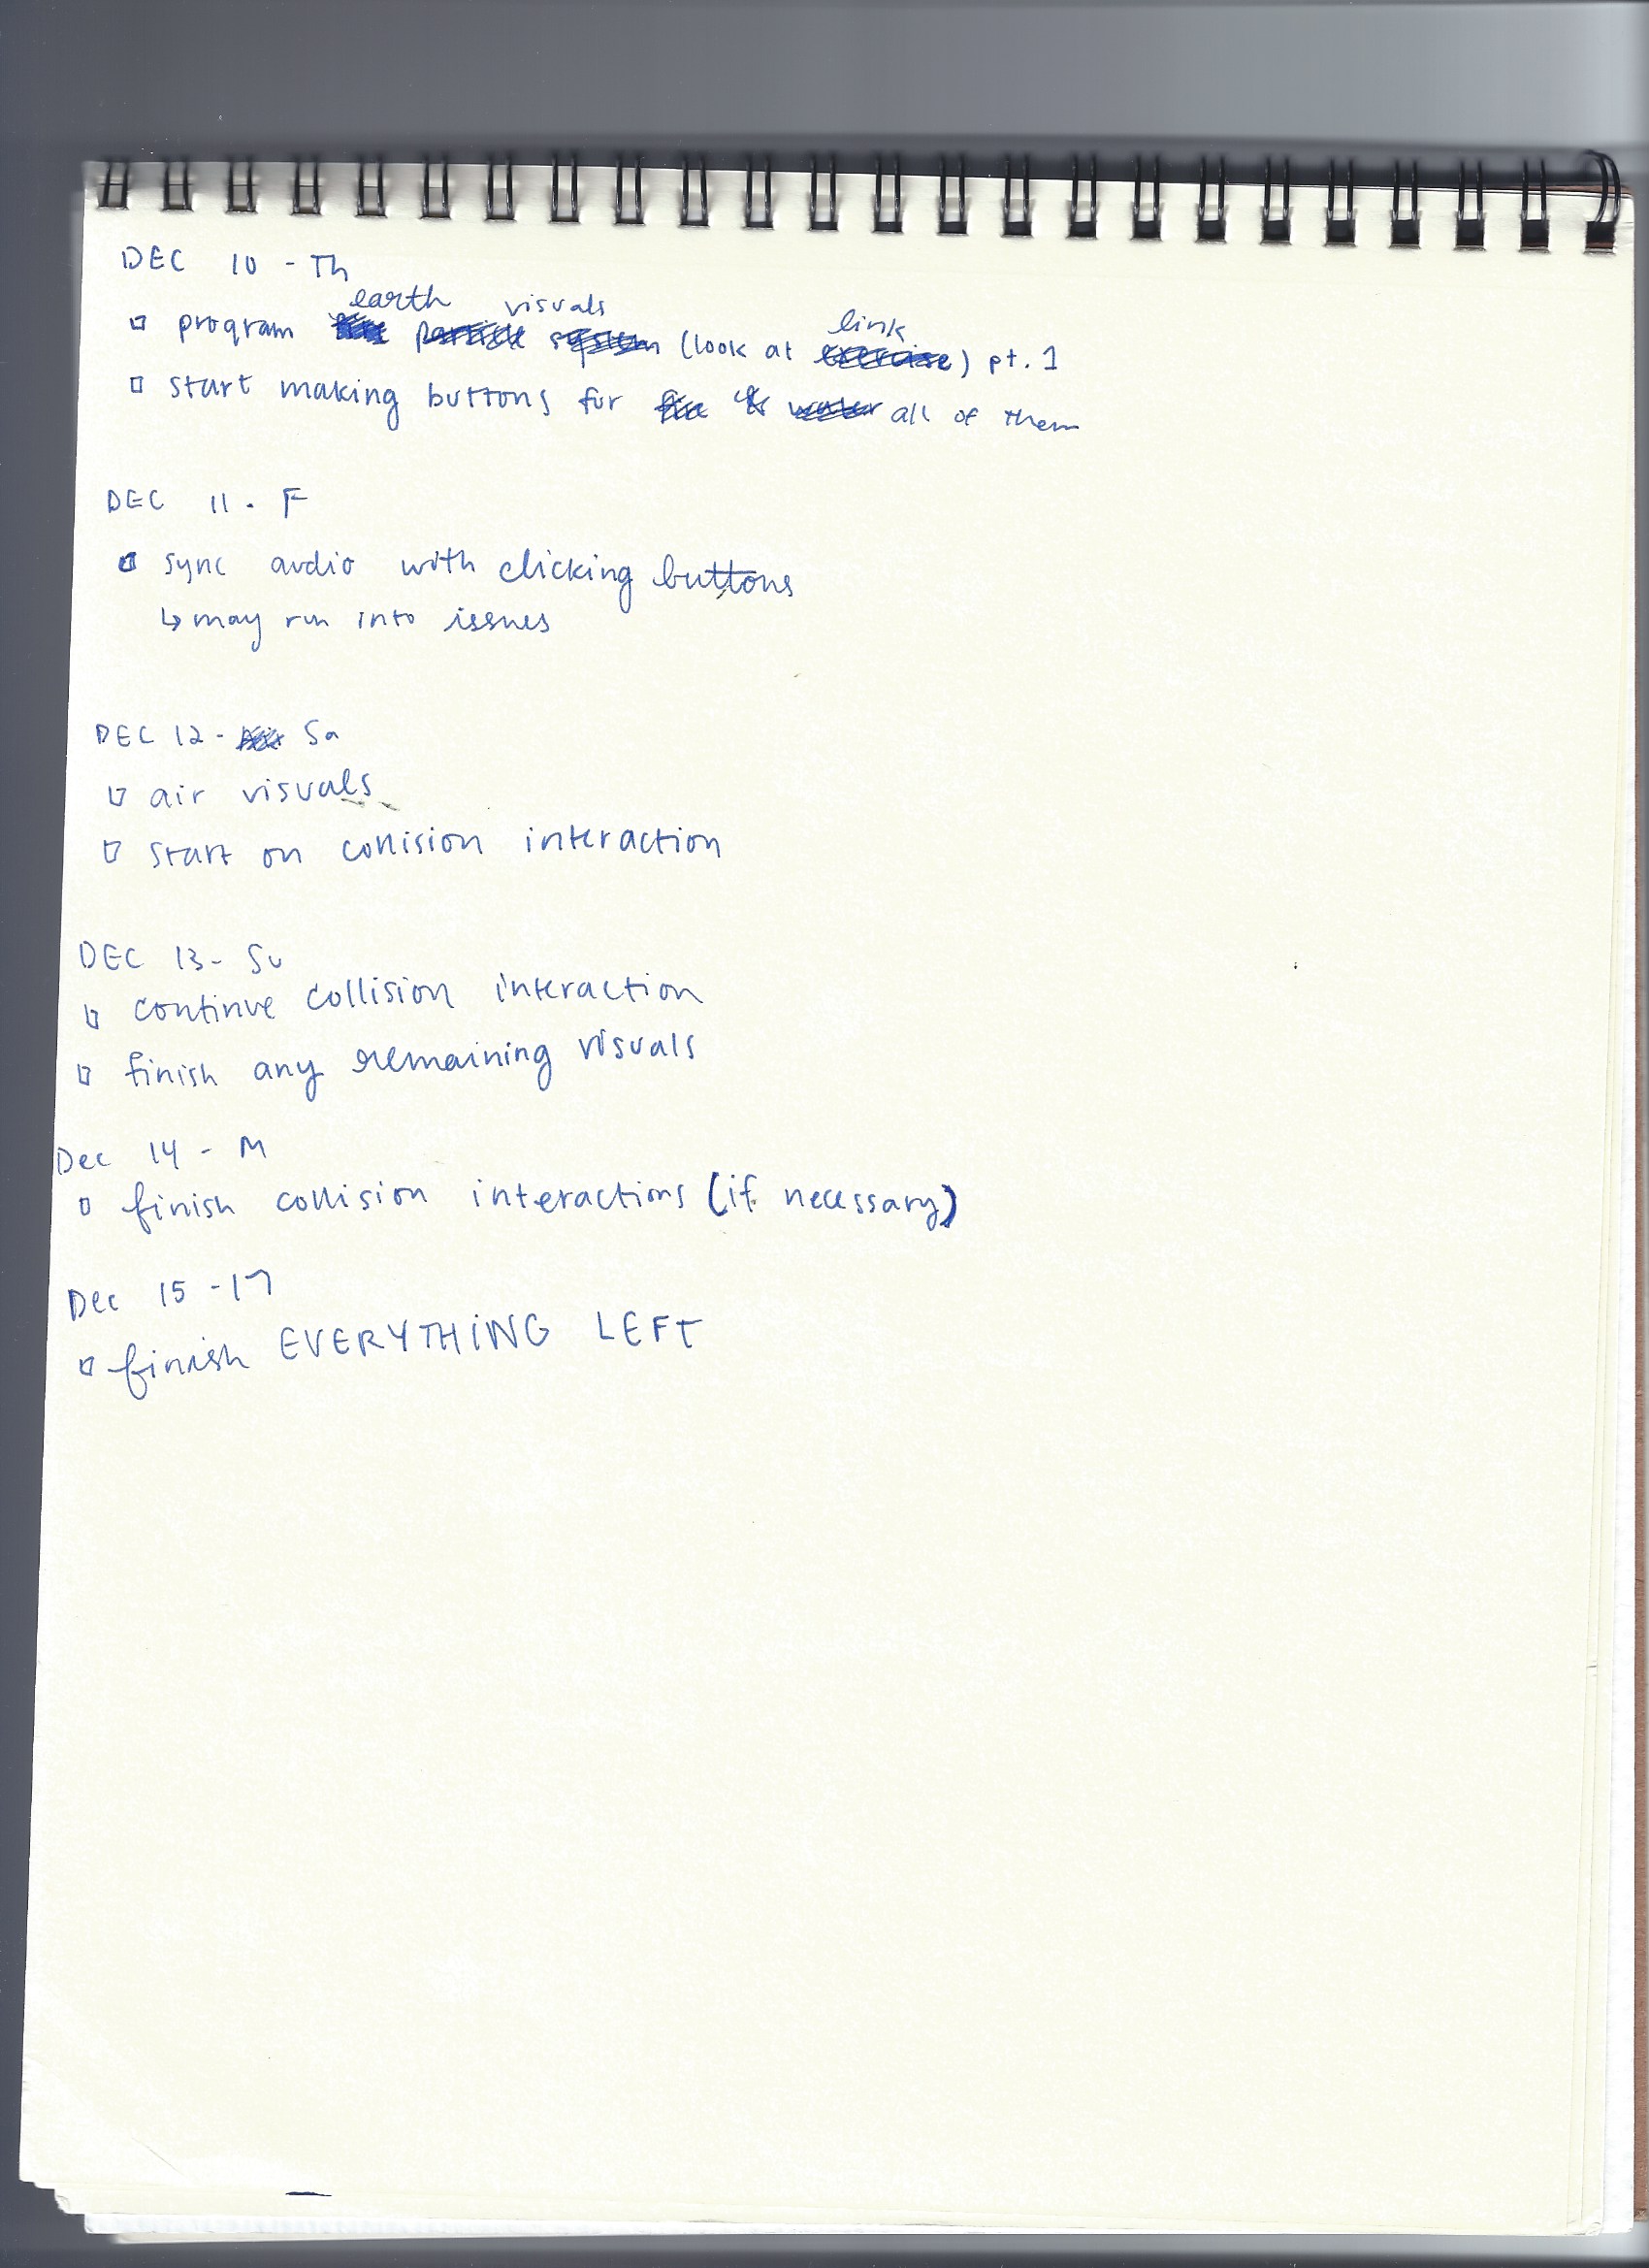 DEC 10 - Th
earth visuals
program particle system (look at exercise) pt. 1
link
start making buttons for fire & water all of them
DEC 11 - F
sync audio with clicking buttons
↳ may run into issues
DEC 12 - Sa
air visuals
start on collision interaction
DEC 13 - Su
continue collision interaction
finish any remaining visuals
Dec 14 - M
finish collision interactions (if necessary)
Dec 15 - 17
finish EVERYTHING LEFT